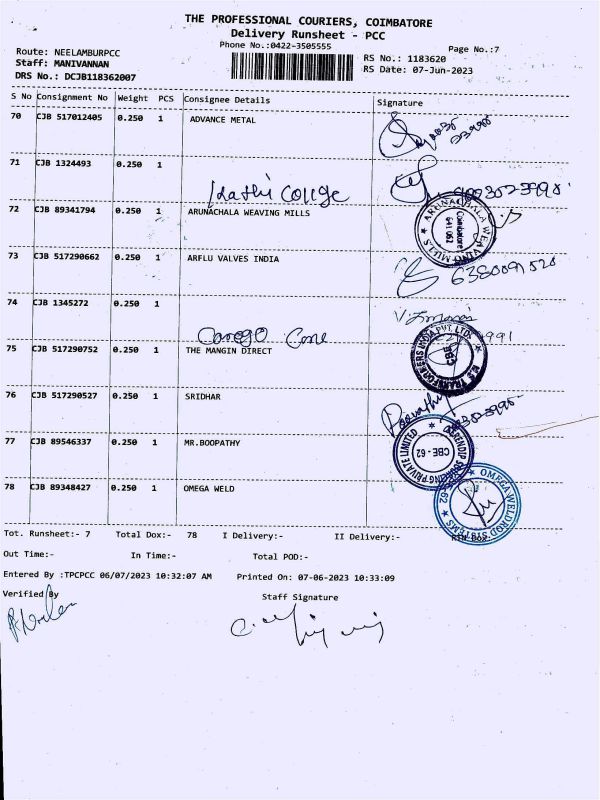 THE PROFESSIONAL COURIERS, COIMBATORE
Delivery Runsheet - PCC
Phone No.:0422-3505555
Page No.:7
Route: NEELAMBURPCC
Staff: MANIVANNAN
DRS No.: DCJB118362007
RS No.: 1183620
RS Date: 07-Jun-2023
S No Consignment No Weight PCS Consignee Details Signature
70 CJB 517012405 0.250 1 ADVANCE METAL
71 CJB 1324493 0.250 1
College
72 CJB 89341794 0.250 1 ARUNACHALA WEAVING MILLS
ARUNACHALA WEAVING MILLS
Coimbatore
641 062
73 CJB 517290662 0.250 1 ARFLU VALVES INDIA
74 CJB 1345272 0.250 1
75 CJB 517290752 0.250 1 THE MANGIN DIRECT
TRANSFORMERS INDIA PVT. LTD.
CBE
76 CJB 517290527 0.250 1 SRIDHAR
77 CJB 89546337 0.250 1 MR.BOOPATHY
PRIVATE LIMITED
CBE - 62
78 CJB 89348427 0.250 1 OMEGA WELD
OMEGA WELDROD SYSTEMS
Tot. Runsheet:- 7 Total Dox:- 78 I Delivery:- II Delivery:-
Out Time:- In Time:- Total POD:-
Entered By :TPCPCC 06/07/2023 10:32:07 AM Printed On: 07-06-2023 10:33:09
Verified By Staff Signature